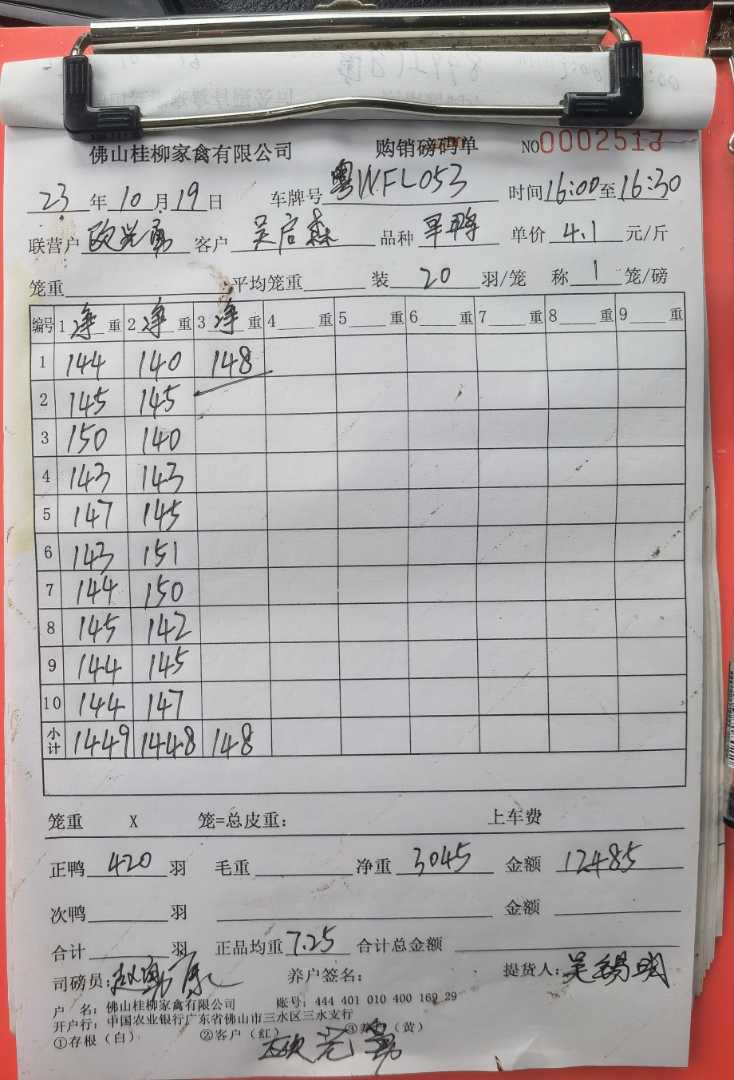 佛山桂柳家禽有限公司 购销磅码单 NO0002513
23年10月19日 车牌号粤WFL053 时间16:00至16:30
联营户 欧光勇 客户 吴启森 品种 单价 4.1 元/斤
笼重 平均笼重 装 20 羽/笼 称 1 笼/磅
编号 1 净 重 2 净 重 3 净 重 4 重 5 重 6 重 7 重 8 重 9 重
1 144 140 148
2 145 145
3 150 140
4 143 143
5 147 145
6 143 151
7 144 150
8 145 142
9 144 145
10 144 147
小计 1449 1448 148
笼重 X 笼=总皮重: 上车费
正鸭 420 羽 毛重 净重 3045 金额 12485
次鸭 羽 金额
合计 羽 正品均重 7.25 合计总金额
司磅员: 赵勇康 养户签名: 提货人: 吴锡明
户 名: 佛山桂柳家禽有限公司 账号: 444 401 010 400 169 29
开户行: 中国农业银行广东省佛山市三水区三水支行
①存根(白) ②客户(红) ③(黄)
欧光勇